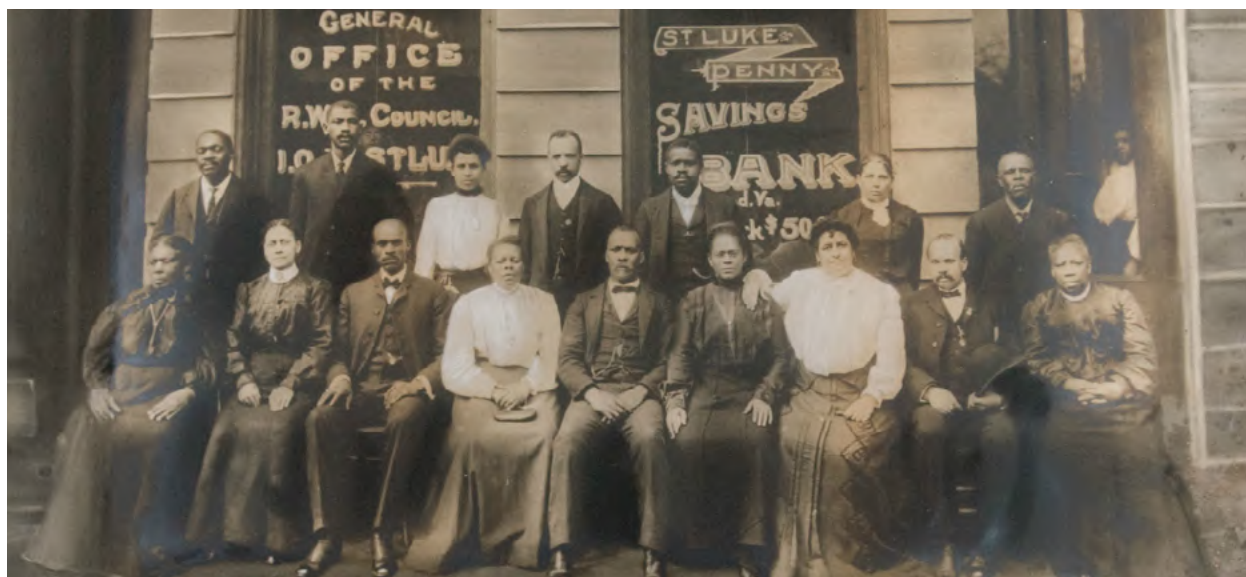 GENERAL
OFFICE
OF THE
COUNCIL.
ST LUKE
PENNY
SAVINGS
BANK
d. Va.
k $ 50